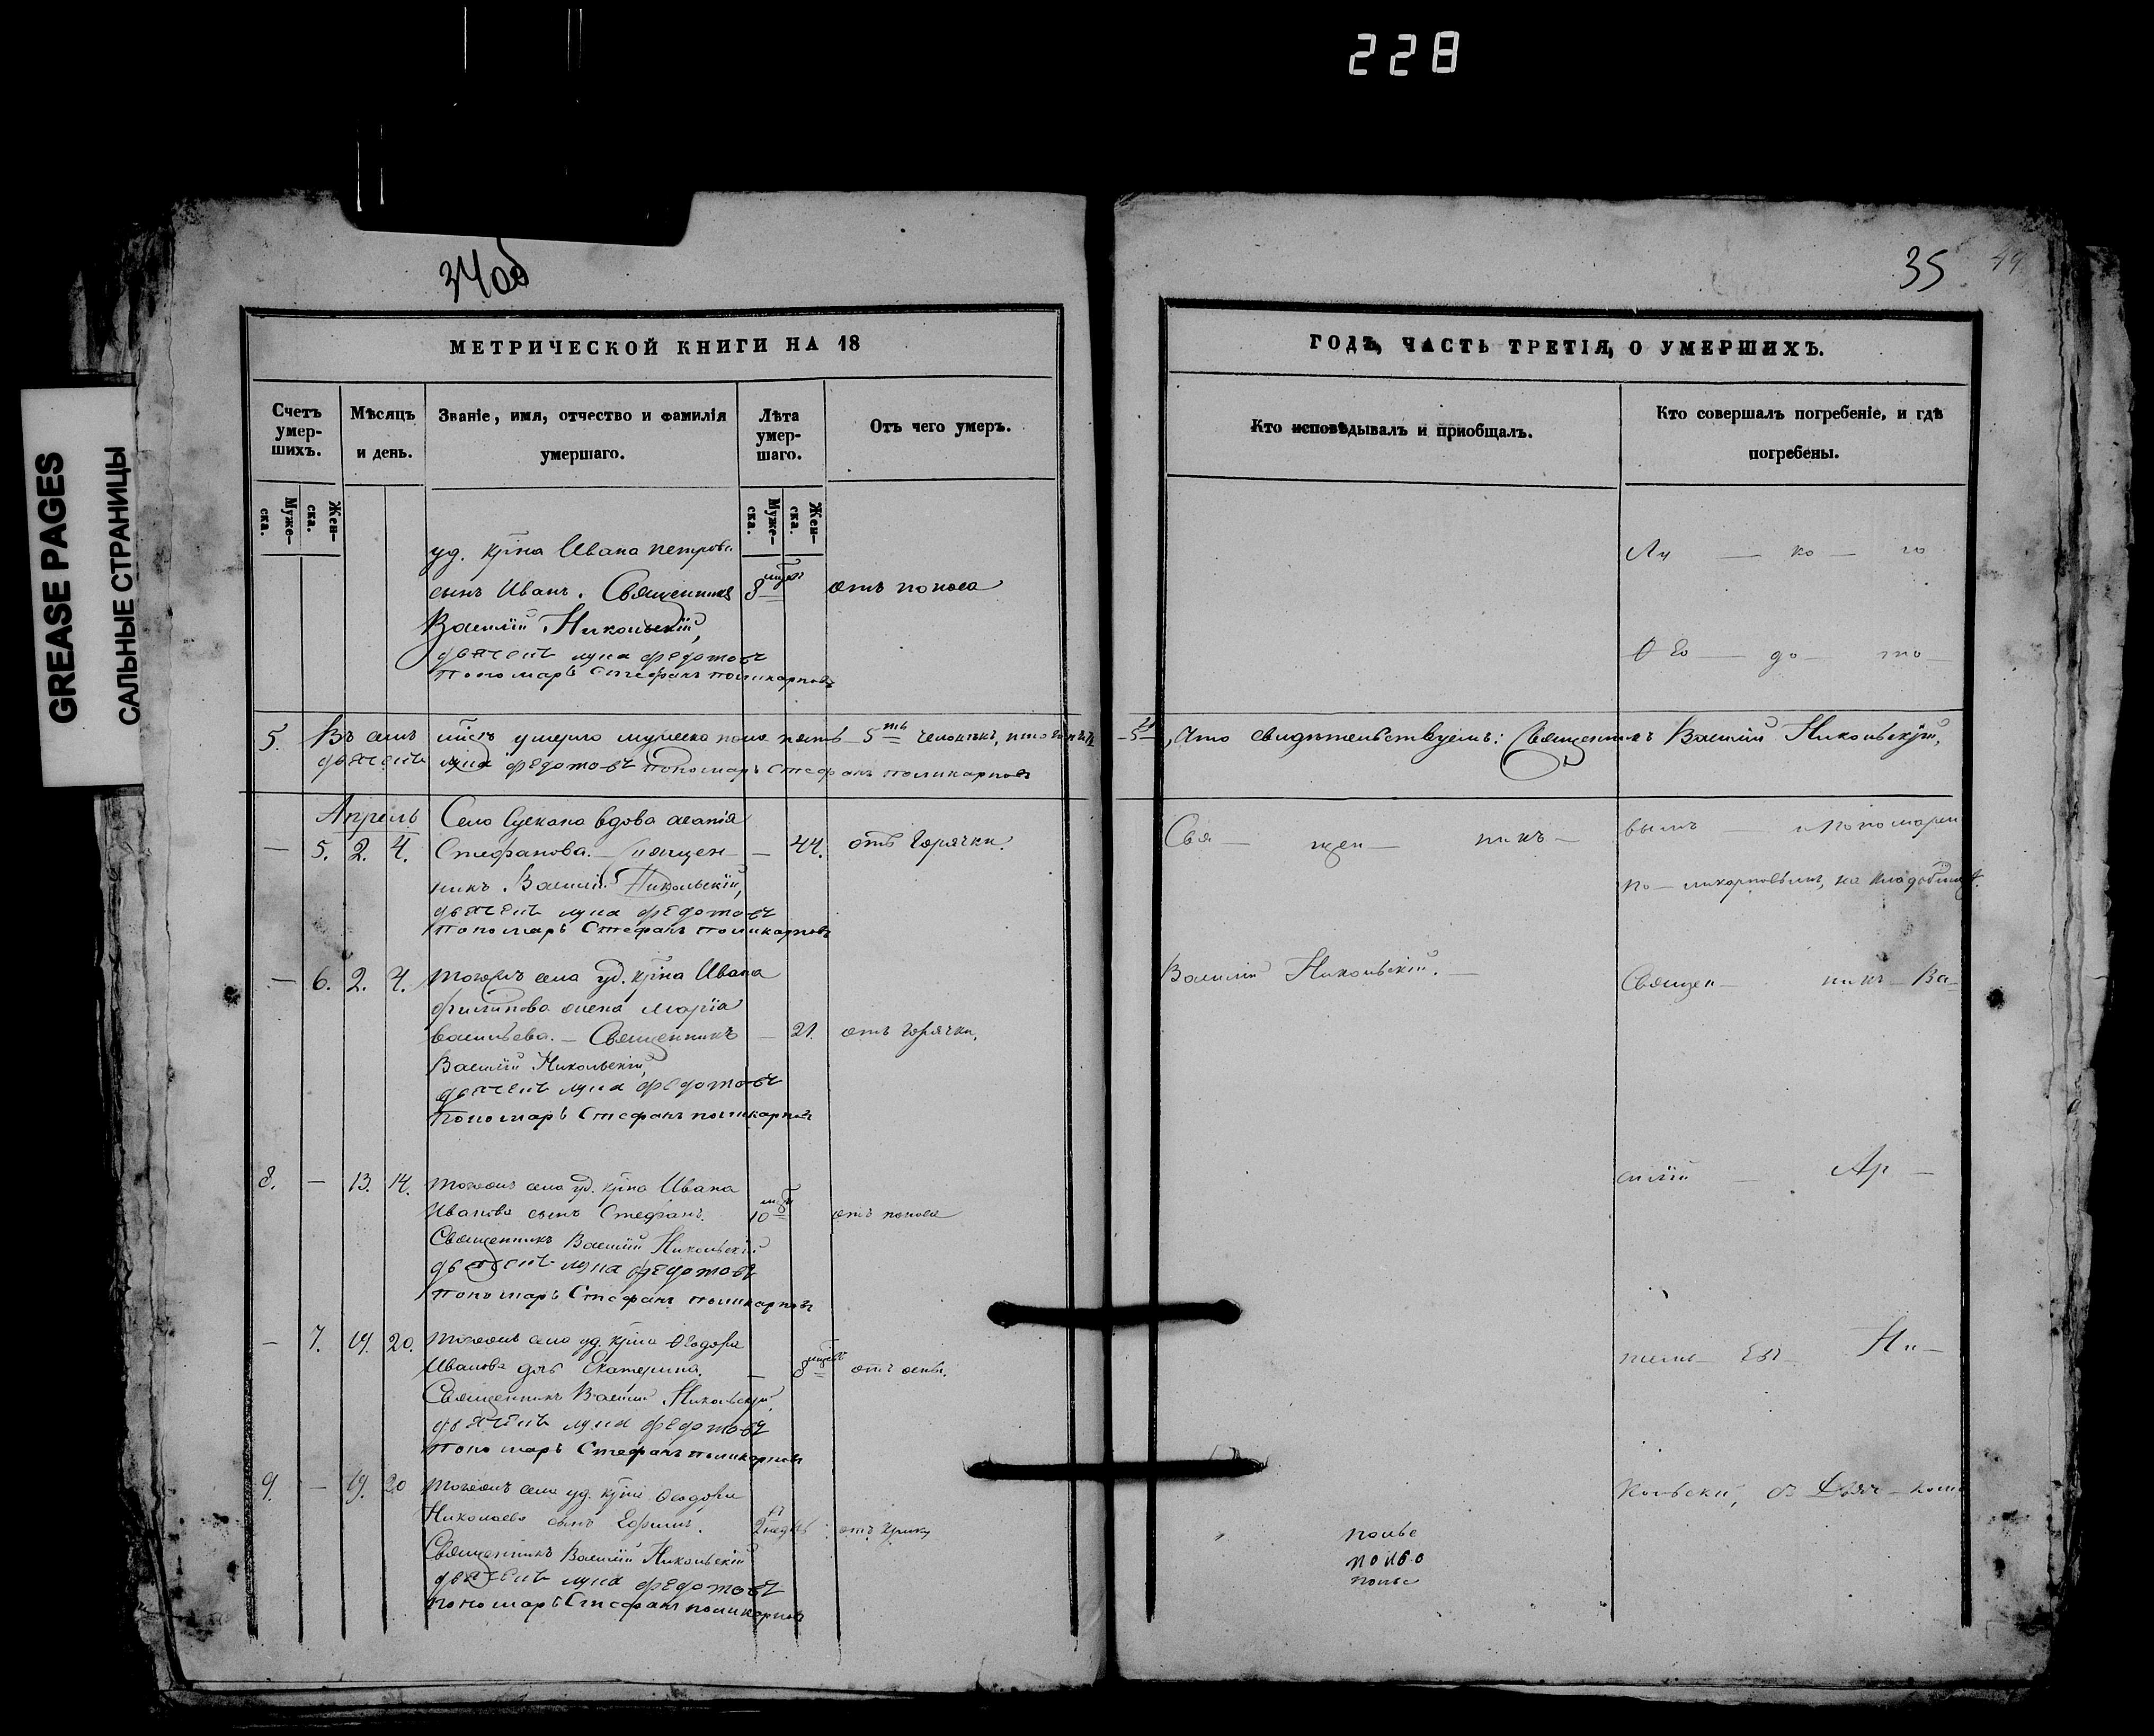 228
GREASE PAGES
САЛЬНЫЕ СТРАНИЦЫ
34об
МЕТРИЧЕСКОЙ КНИГИ НА 18
Счетъ умер-шихъ.
Мѣсяцъ и день.
Званіе, имя, отчество и фамилія умершаго.
Лѣта умер-шаго.
Отъ чего умеръ.
Муже-ска.
Жен-ска.
Муже-ска.
Жен-ска.
уд. кр̃на Ивана Петрова
сынъ Иванъ. Священникъ 8 отъ поноса
Василій Никольскій,
дьячекъ Лука Федотовъ
пономарь Стефанъ Поликарповъ
5. умерло мужеска пола пять 5
дьячекъ Лука Федотовъ пономарь Стефанъ Поликарповъ
Апрѣль Села вдова
— 5. 2. 4. Стефанова. Священ — 44. отъ горячки.
никъ Василій Никольскій,
дьячекъ Лука Федотовъ
пономарь Стефанъ Поликарповъ
— 6. 2. 4. Тогожъ села уд. кр̃на Ивана
Филипова жена Марія
Васильева. — Священникъ — 21. отъ горячки.
Василій Никольскій,
дьячекъ Лука Федотовъ
пономарь Стефанъ Поликарповъ
8. — 13. 14. Тогожъ села уд. кр̃на Ивана
Иванова сынъ Стефанъ. 10 отъ поноса
Священникъ Василій Никольскій
дьячекъ Лука Федотовъ
пономарь Стефанъ Поликарповъ
— 7. 19. 20. Тогожъ села уд. кр̃на Ѳеодора
Иванова дочь Екатерина. — 8 отъ оспы.
Священникъ Василій Никольскій,
дьячекъ Лука Федотовъ
пономарь Стефанъ Поликарповъ
9. — 19. 20 Тогожъ села уд. кр̃на Ѳеодора
Николаева сынъ Ефимъ. 2
Священникъ Василій Никольскій
дьячекъ Лука Федотовъ
пономарь Стефанъ Поликарповъ
35
ГОДЪ, ЧАСТЬ ТРЕТІЯ, О УМЕРШИХЪ.
Кто исповѣдывалъ и приобщалъ.
Кто совершалъ погребеніе, и гдѣ погребены.
Лу — ко — ю
Ѳео — до — то —
свидѣтельствуемъ: Священникъ Василій Никольскій,
Свя — щен — никъ —
вымъ — и пономарем
По — ликарповымъ, на кладбищѣ.
Василій Никольскій. —
Священ — никъ — Ва —
силій — Ар —
темь — евъ — Ни —
кольскій, съ Дьяч — комъ